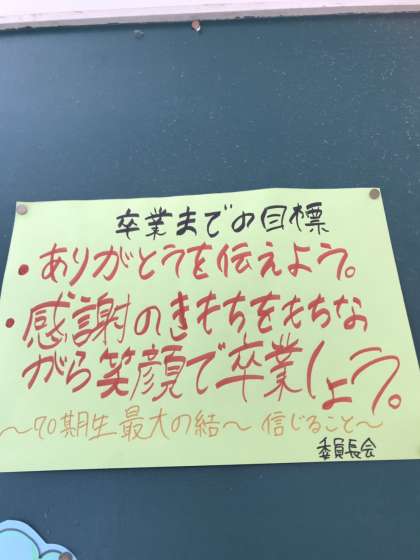 卒業までの目標
・ありがとうを伝えよう。
・感謝のきもちをもちな
がら笑顔で卒業しょう。
～70期生最大の結～信じること～
委員長会